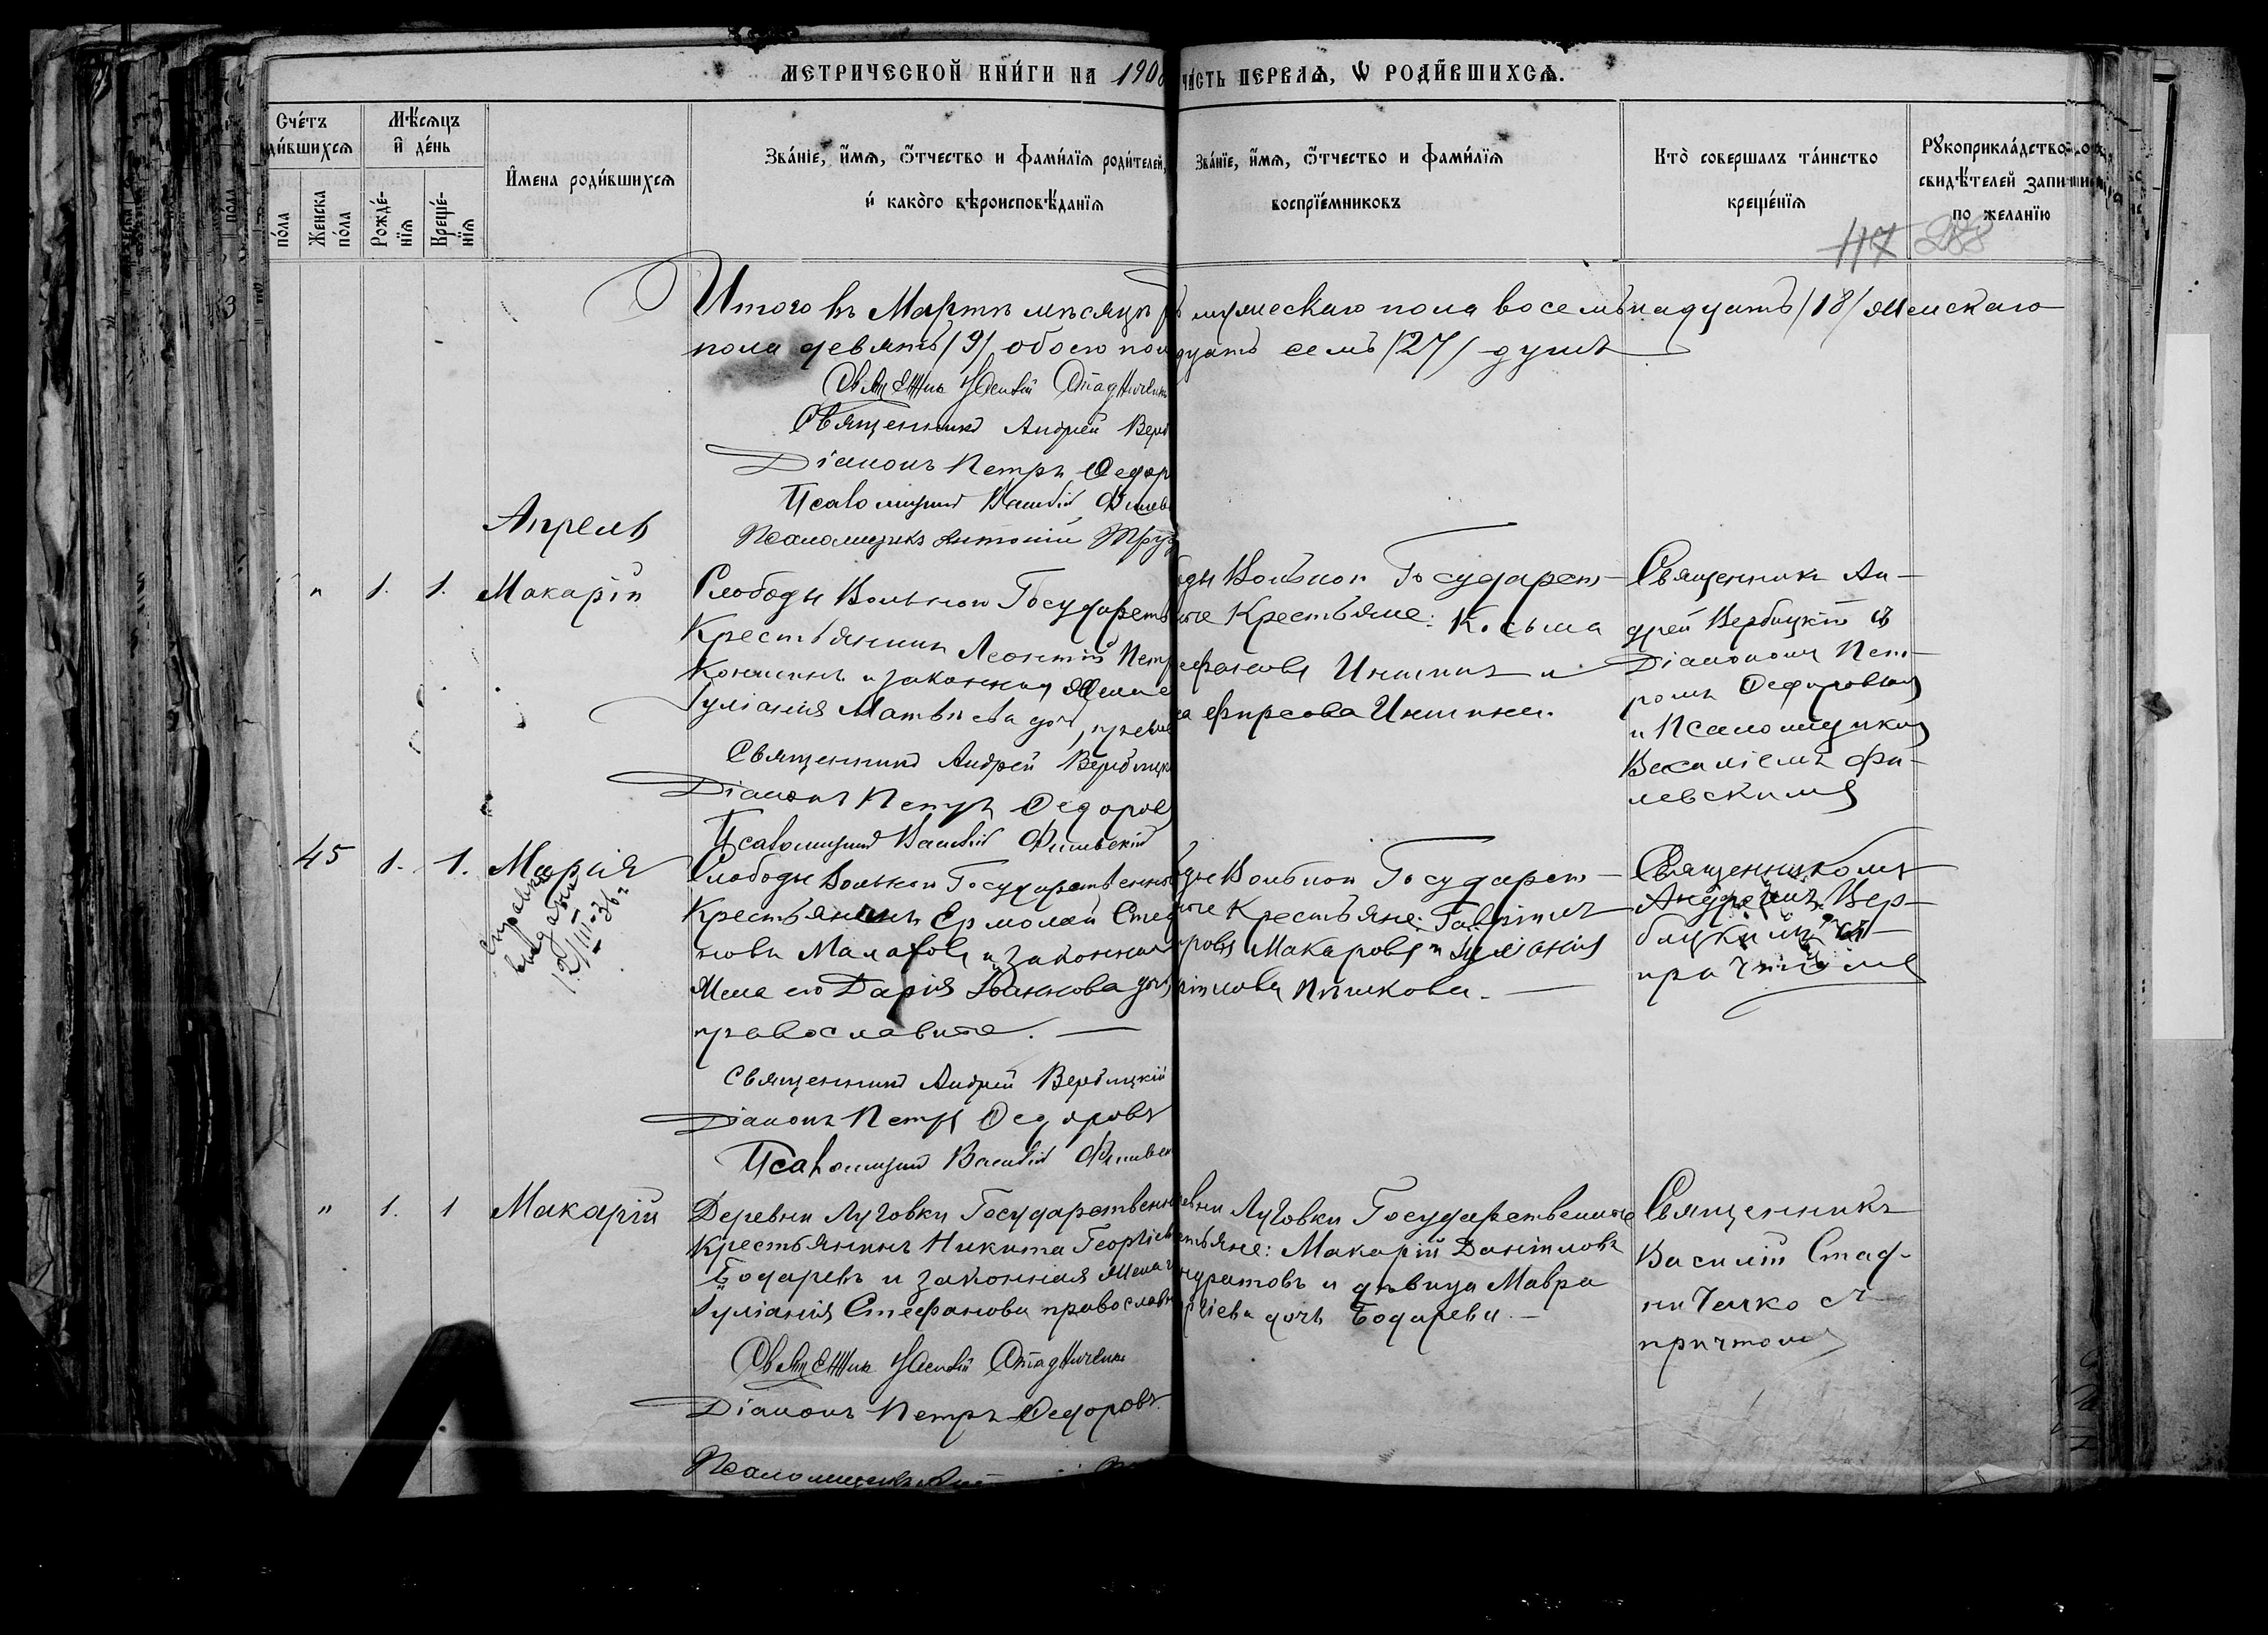 МЕТРИЧЕСКОЙ КНИ́ГИ НА 1906
ЧА́СТЬ ПЕРВАѦ, Ѡ РОДИ́ВШИХСѦ.
Сче́тъ
ди́вшихсѧ
по́ла
Женска
по́ла
Мѣ́сѧцъ
и де́нь
Рожде́-
нїѧ
Креще́-
нїѧ
И҆мена роди́вшихсѧ
Зва́нїе, и҆мѧ, ѻ҆́тчество и фами́лїѧ роди́телей,
и҆ како̀го вѣроисповѣ́данїѧ
Зва́нїе, и҆мѧ, ѻ҆́тчество и фами́лїѧ
воспрїе́мниковъ
Кто̀ совершалъ та́инство
креще́нїѧ
Рꙋкоприкла́дство
свидѣ́телей запи
по жела́нїю
117 288
Итого въ Мартѣ мѣсяцѣ
мужескаго пола восемьнадцать /18/ женскаго
пола девять /9/ обоего пол
дцать семь /27/ душъ
Священникъ Василій Стадниченко
Священникъ Андрей Верб
Діаконъ Петръ Федор
Псаломщикъ Василій Филев
Псаломщикъ Антоній Тру
Апрель
" 1. 1. Макарій
Слободы Вольной Государств
Крестьянинъ Леонтій Петр
и законная жена е
Іуліанія Матвѣева доч, прав
Священникъ Андрей Вербицкі
Діаконъ Петръ Федоров
Псаломщикъ Василій Филевскій
оды Вольной Государст-
ные Крестьяне: Косьма
ефановъ Иншинъ и
а Фирсова Иншина.
Священникъ Ан-
дрей Вербицкій съ
Діакономъ Пет-
ромъ Федоровым
и Псаломщиком
Василіемъ Фи-
левскимъ
45 1. 1. Марія
Справка
выдана
12/III-36 г
Слободы Вольной Государственной
Крестьянинъ Ермолай Стефа
новъ Малаховъ и законная
Жена его Дарія Іоаннова доч,
православные.
Священникъ Андрей Вербицкій
Діаконъ Петръ Федоровъ
Псаломщикъ Василій Филевск
оды Вольной Государст-
ные Крестьяне: Гавріилъ
ровъ Макаровъ и Іуліанія
ріилова Пѣшкова.
Священникомъ
Андреемъ Вер-
бицкимъ съ
причтомъ
" 1. 1 Макарій
Деревни Луговки Государственн
Крестьянинъ Никита Георгіев
Бодаревъ и законная жена
Іуліанія Стефанова православн
Священникъ Василій Стадниченко
Діаконъ Петръ Федоровъ.
Псаломщикъ
евни Луговки Государственные
стьяне: Макарій Даніиловъ
ндратовъ и дѣвица Мавра
ргіева дочь Бодарева.
Священникъ
Василій Стад-
ниченко съ
причтомъ